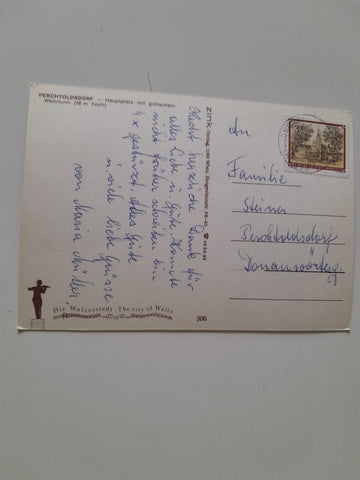 PERCHTOLDSDORF – Hauptplatz mit gotischem
Wehrturm (56 m hoch)
Recht herzliche Dank für
alles liebe u. Gute. Konnte
nicht früher schreiben bin
4 x gestürzt. Alles Gute
u. viele liebe Grüsse
von Maria Müller
Die Walzerstadt - The city of Waltz
zink
306
An
Familie
Steiner
Perchtoldsdorf